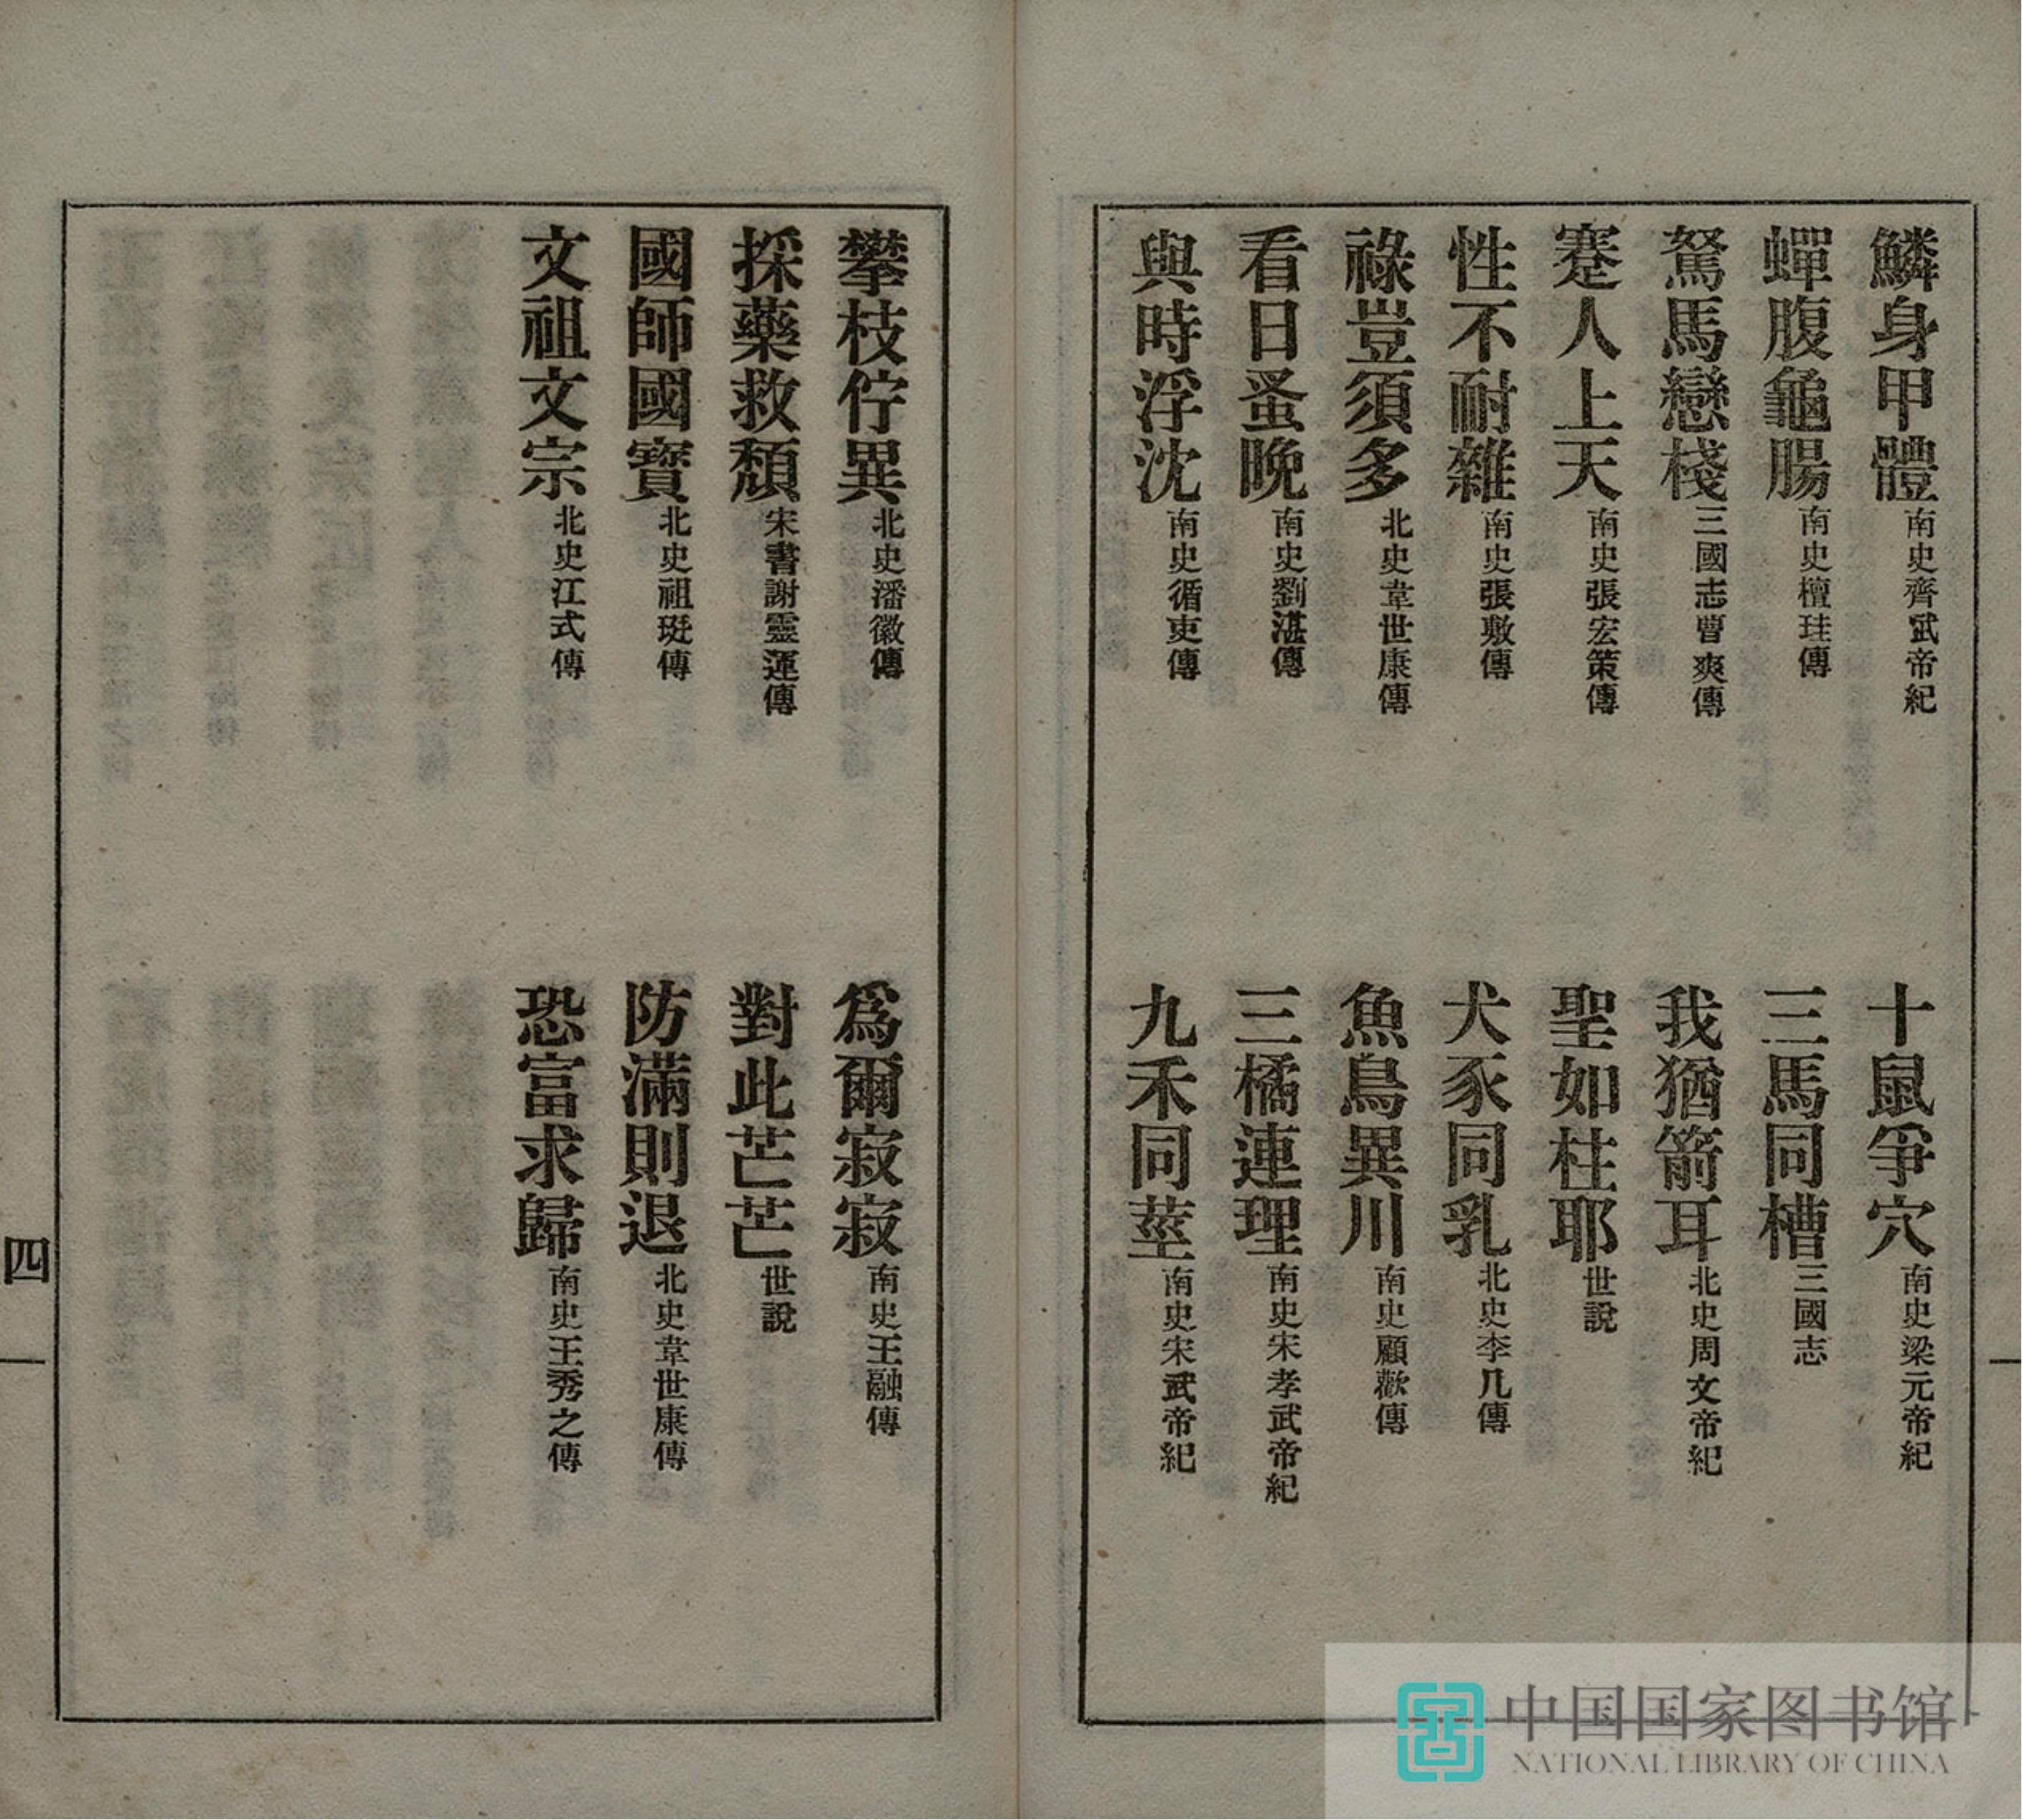 鱗身甲體南史齊武帝紀
十鼠爭穴南史梁元帝紀
蟬腹龜腸南史檀珪傳
三馬同槽三國志
駑馬戀棧三國志曹爽傳
我猶箭耳北史周文帝紀
蹇人上天南史張宏策傳
聖如柱耶世說
性不耐雜南史張敷傳
犬豕同乳北史李几傳
祿豈須多北史韋世康傳
魚鳥異川南史顧歡傳
看日蚤晚南史劉湛傳
三橘連理南史宋孝武帝紀
與時浮沈南史循吏傳
九禾同莖南史宋武帝紀
攀枝佇異北史潘徽傳
為爾寂寂南史王融傳
採藥救頹宋書謝靈運傳
對此芒芒世說
國師國寶北史祖珽傳
防滿則退北史韋世康傳
文祖文宗北史江式傳
恐富求歸南史王秀之傳
四
中国国家图书馆
NATIONAL LIBRARY OF CHINA